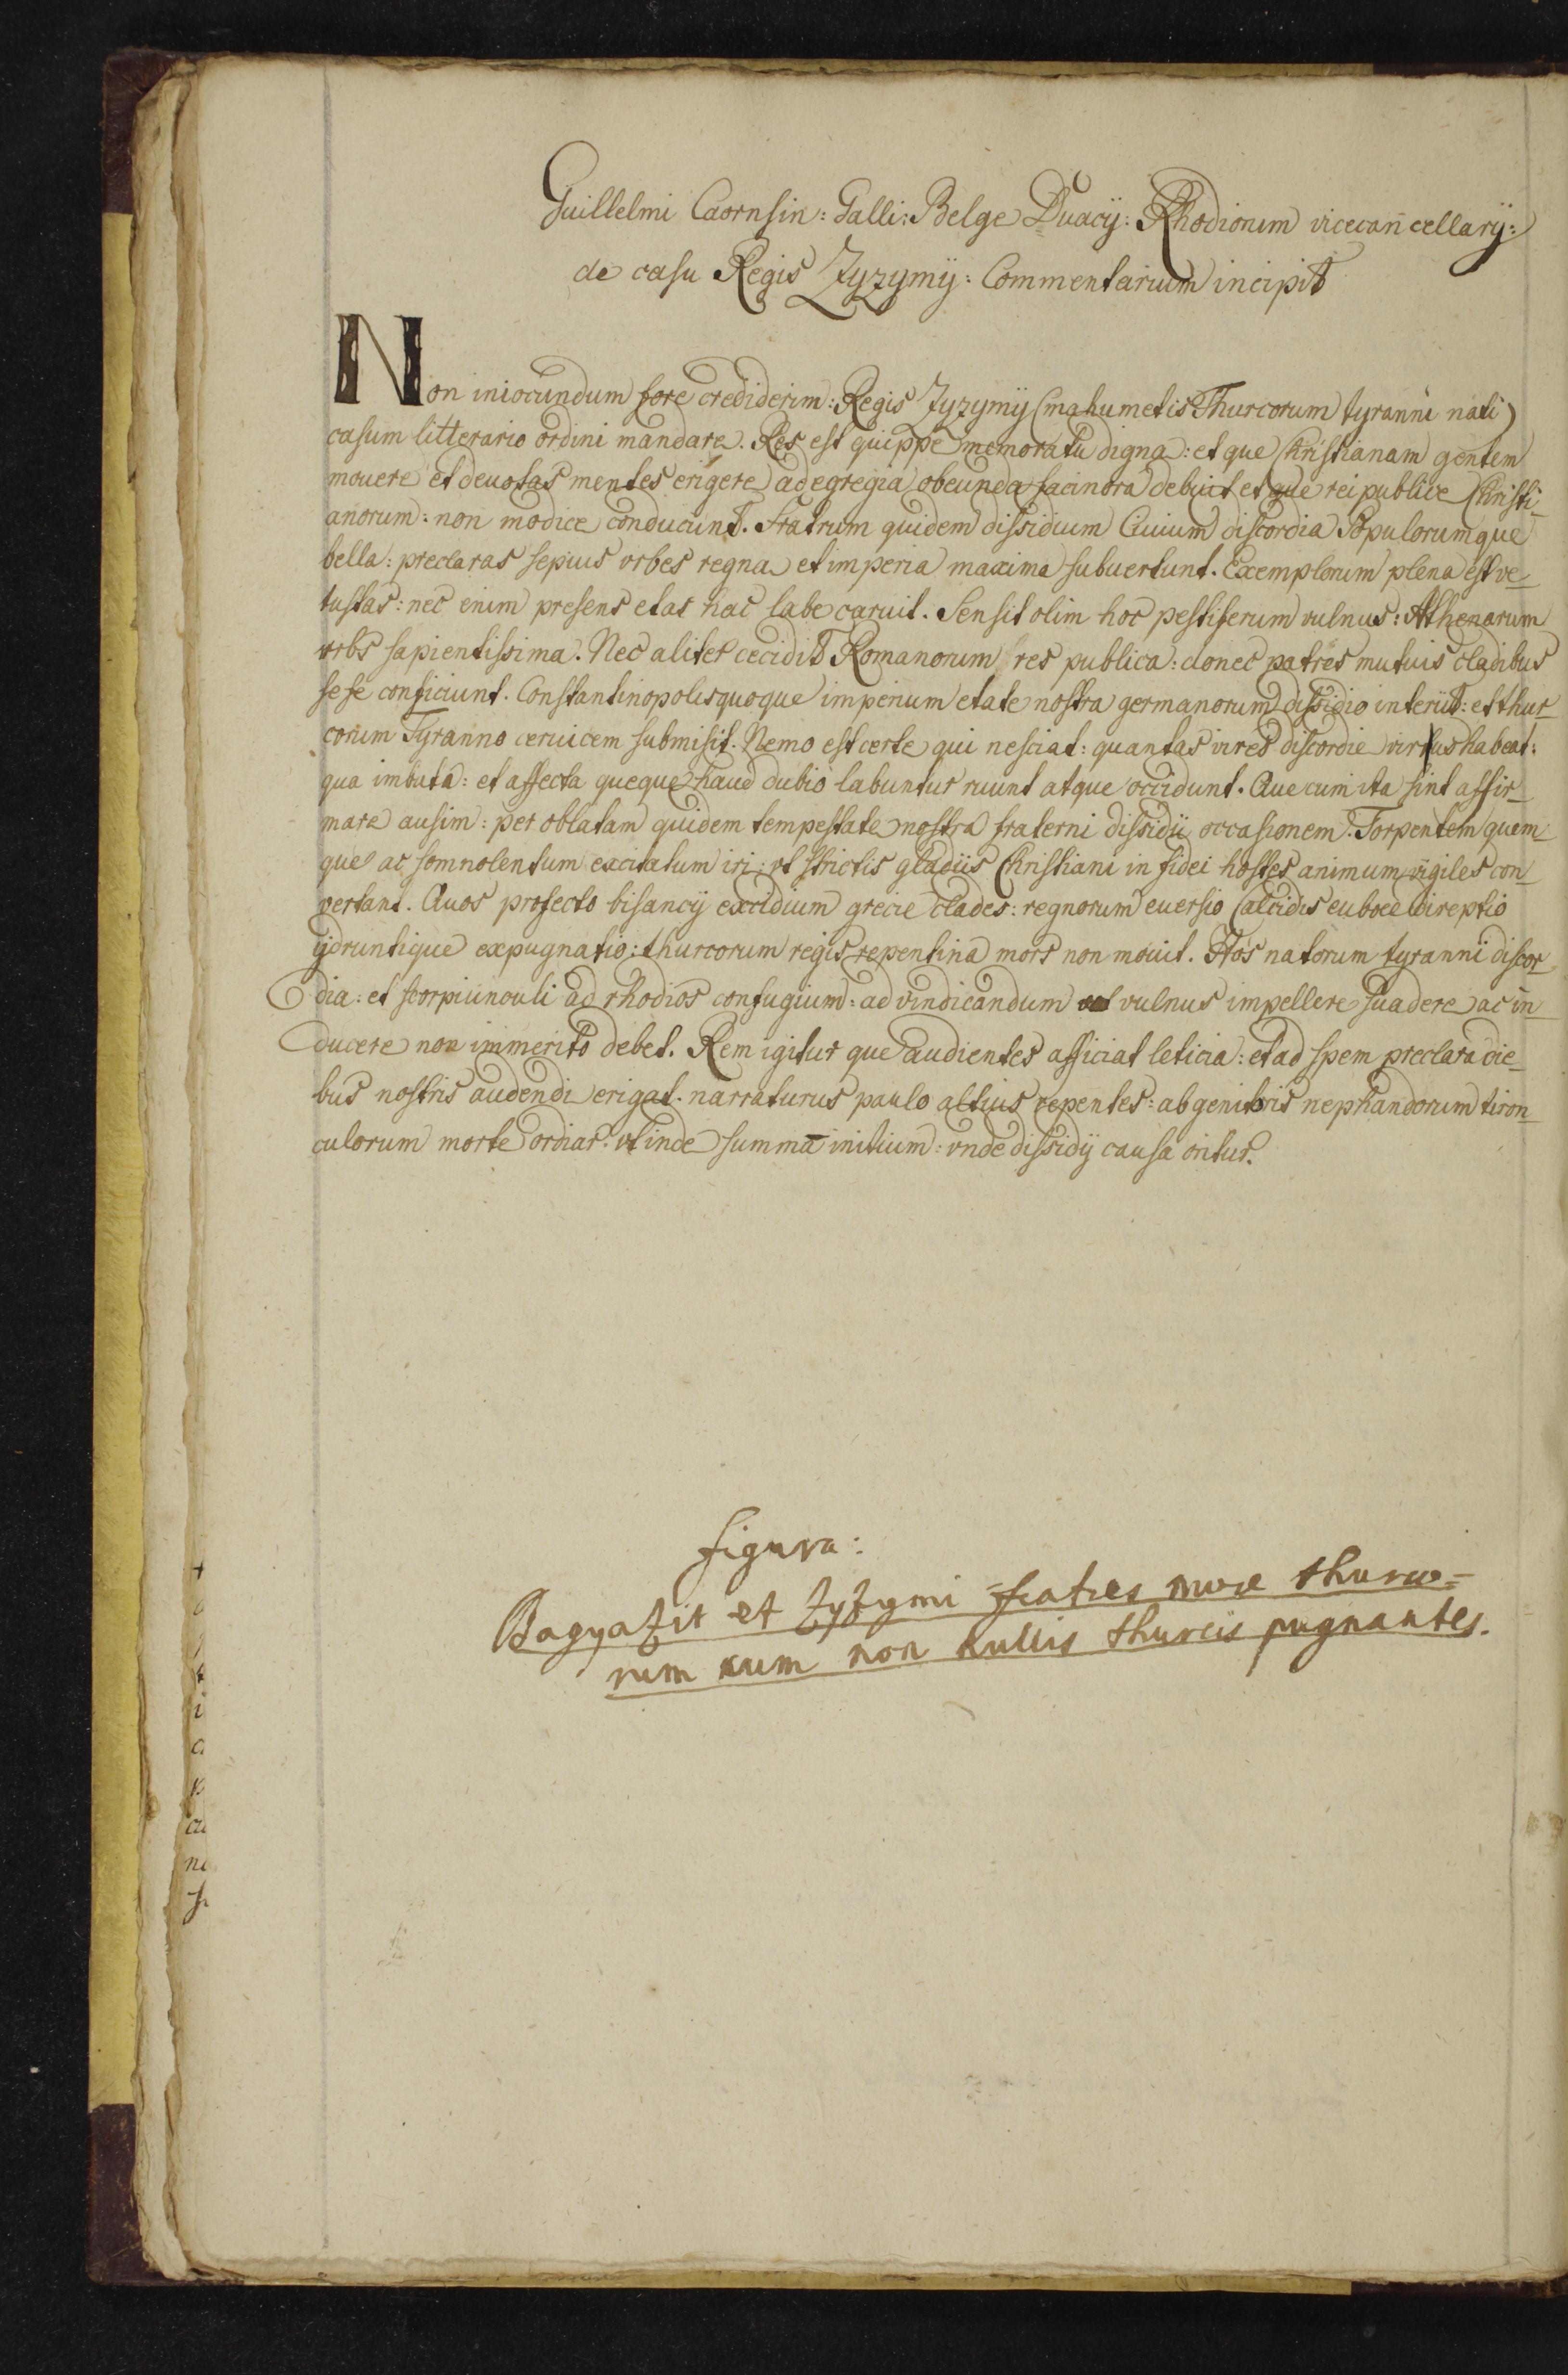 Guillelmi Caornsin: Galli: Belge Duacij: Rhodiorum vicecan̄cellarij:
de casu Regis Zyzymij: Commentarium incipit
Non iniocundum fore crediderim: Regis Zyzymij (mahumetis Thurcorum tyranni nati)
casum litterario ordini mandare. Res est quippe memoratu digna: et que Christianam gentem
mouere et deuotas mentes erigere ad egregia obeunda facinora debuit et que rei publice Christi_
anorum: non modice conducunt. Fratrum quidem dissidium Ciuium discordia Populorumque
bella: preclaras sepius vrbes regna et imperia maxima subuertunt. Exemplorum plena est ve_
tustas: nec enim presens etas hac labe caruit. Sensit olim hoc pestiferum vulnus: Athenarum
vrbs sapientissima. Nec aliter cecidit Romanorum res publica: donec patres mutuis cladibus
sese conficiunt. Constantinopolis quoque imperium etate nostra germanorum dissidio interiit: et thur_
corum Tyranno ceruicem submisit. Nemo est certe qui nesciat: quantas vires discordie virus habeat:
qua imbuta: et affecta queque haud dubio labuntur ruunt atque occidunt. Que cum ita sint affir_
mare ausim: per oblatam quidem tempestate nostra fraterni dissidii occasionem. Torpentem quem_
que ac somnolentum excitatum iri: vt strictis gladiis Christiani in fidei hostes animum vigiles con_
vertant. Quos profecto bisancij excidium grecie clades: regnorum euersio Calcidis euboee direptio
ijdruntique expugnatio: thurcorum regis repentina mors non mouit. Hos natorum tyranni discor_
dia: et scorpiunculi ad rhodios confugium: ad vindicandum vulnus impellere suadere ac in_
ducere non immerito debet. Rem igitur que audientes afficiat leticia: et ad spem preclara die_
bus nostris audendi erigat. narraturus paulo altius repentes: ab genitoris nephandorum tiron_
culorum morte ordiar. vt inde summā initium: vnde dissidij causa oritur.
figura:
Bagyazit et Zyzymi fratres more thurco=
rum cum non nullis thurcis pugnantes.